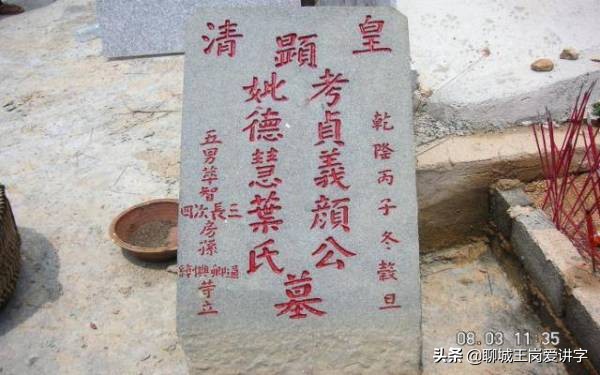 皇清
乾隆丙子冬穀旦
顯
考貞義顏公
妣德慧葉氏
墓
五男智
三長次四
房孫
卿興
等立
08.03 11:35
头条 @聊城王岗爱讲字